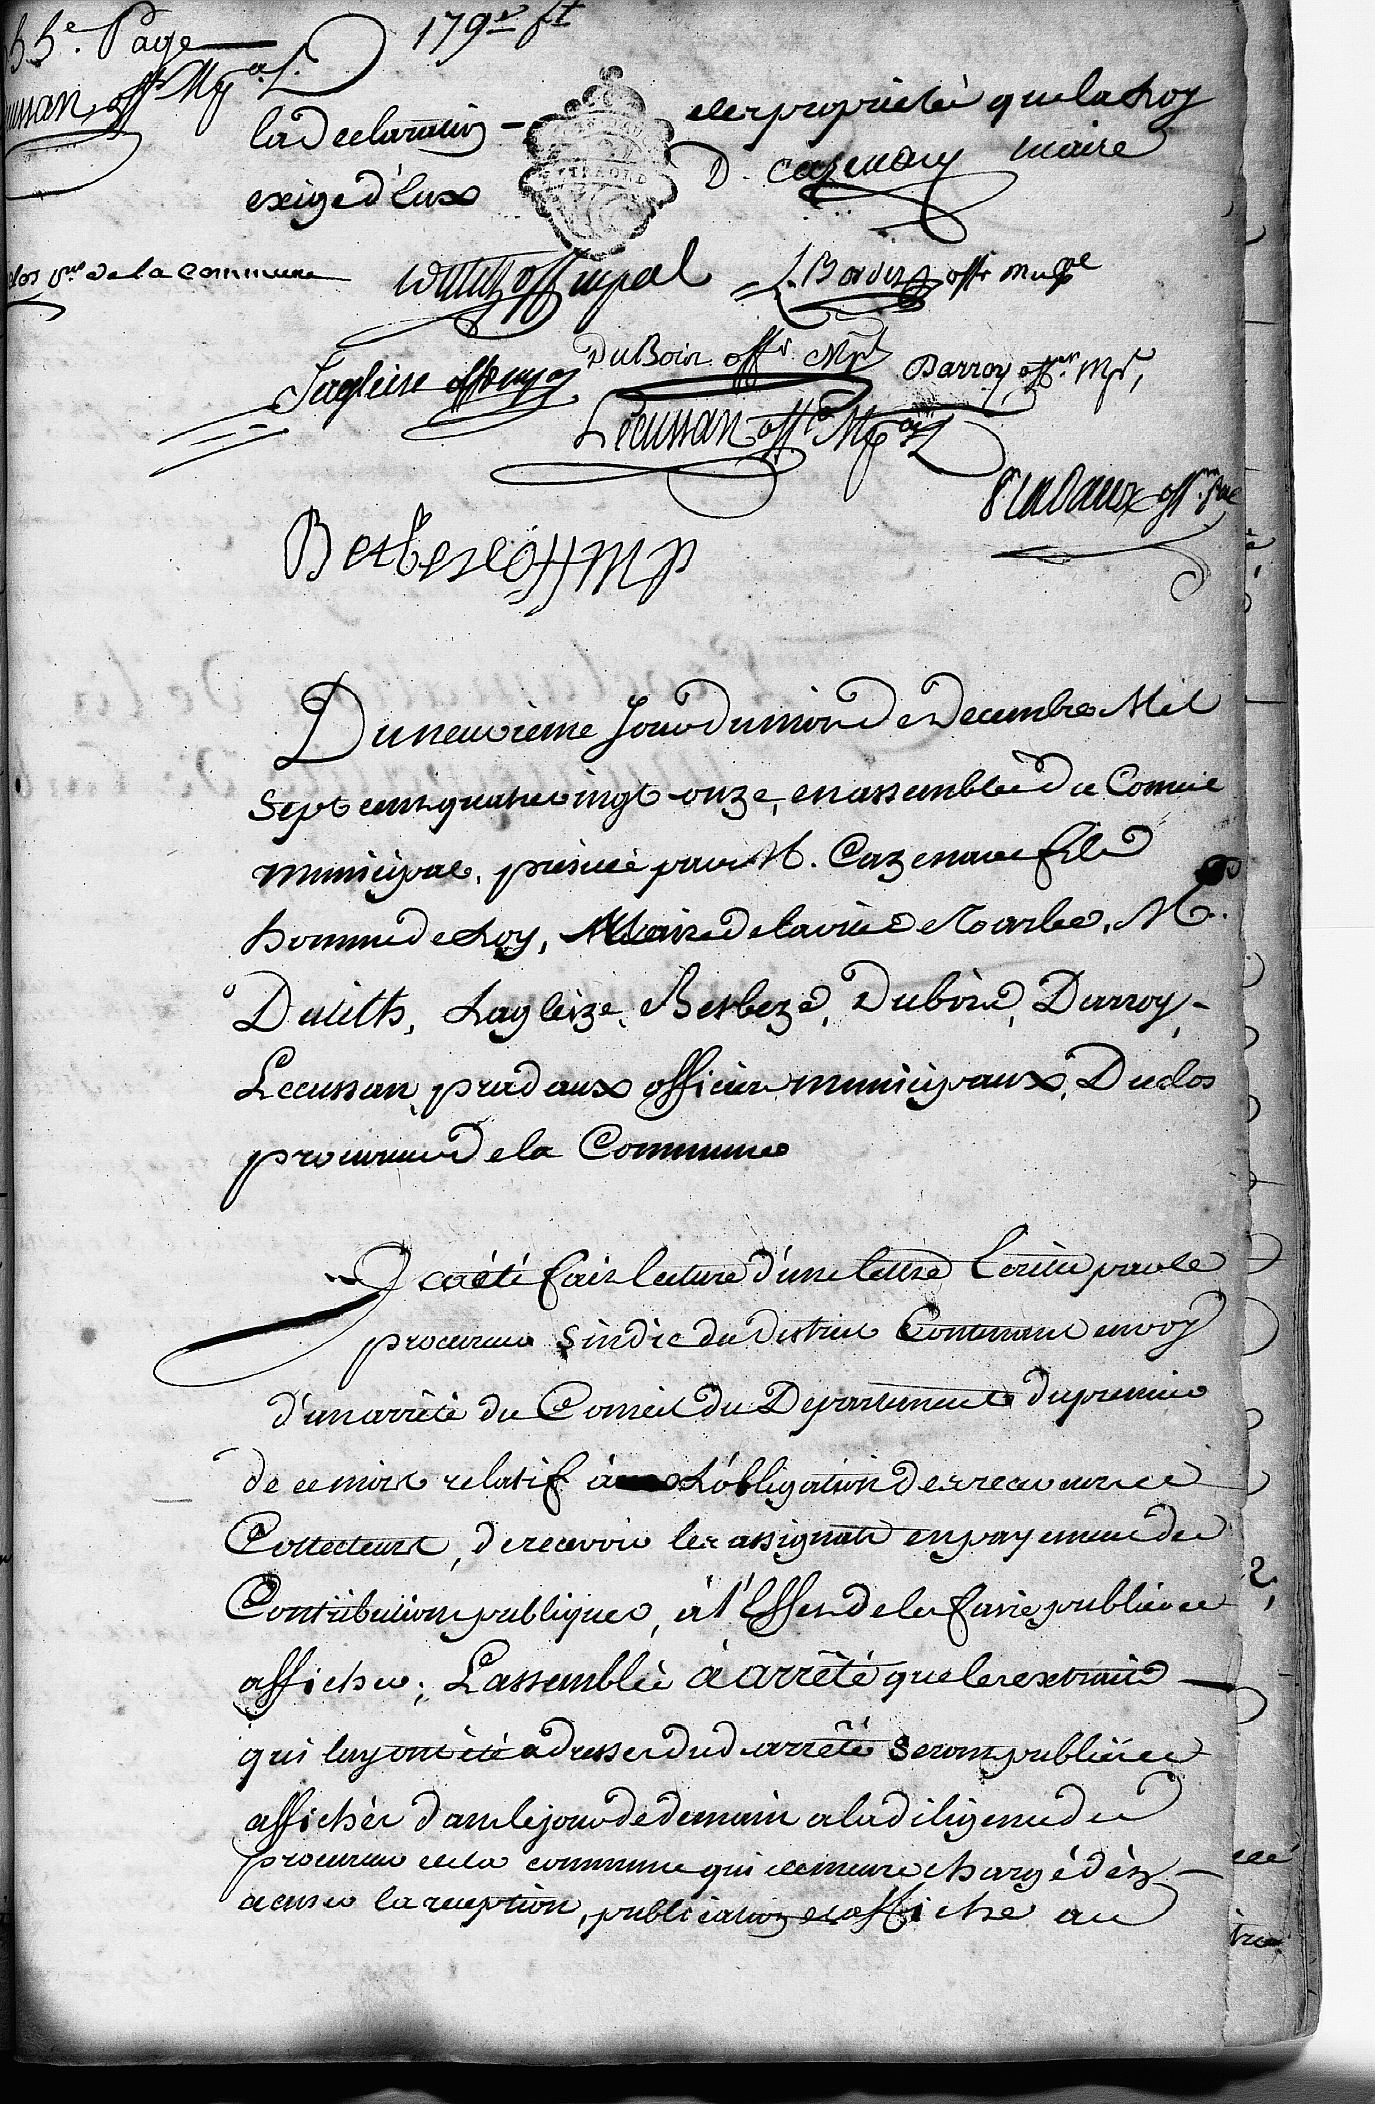 55e. Page 179e ft
Lecussan off Mpal
la declaration des proprietés que la Loy
exige d'Eux D. Cazenave maire
clos pr de la commune Dutilh off mpal L. Baders offr mupl
Lagleise off mpal DuBois offr. Mpl Darroy offer. Mpl,
Lecussan offer Mpal
Pradaux off. mal
Berbeze off mp
Du neuvieme Jour du mois de Decembre Mil
Sept cens quatre vingt onze, en assemblée du Conseil
municipal, presidé par M. Cazenave fils
homme de Loy, Maire de la ville de Tarbe, M.
Dutilh, Lagleize, Berbeze, Dubois, Darroy,
Lecussan, pradaux officiers municipaux, Duclos
procureur de la Commune
Il a été fait lecture d'une lettre Ecritte par le
procureur Sindic du district Contenant envoy
d'un arrêté du Conseil du Departement du premier
de ce mois relatif à L'obligation des receveurs et
Collecteurs, de recevoir les assignats en payement des
Contributions publiques, à l'Effet de le faire publier et
afficher; L'assemblée à arrêté que les extraits
qui luy ont été adressés dud. arrêté Seront publiés et
affichés dans le jour de demain a la diligence du
procureur de la commune qui demeure chargé d'en
acuser la reception, publication et affiche au